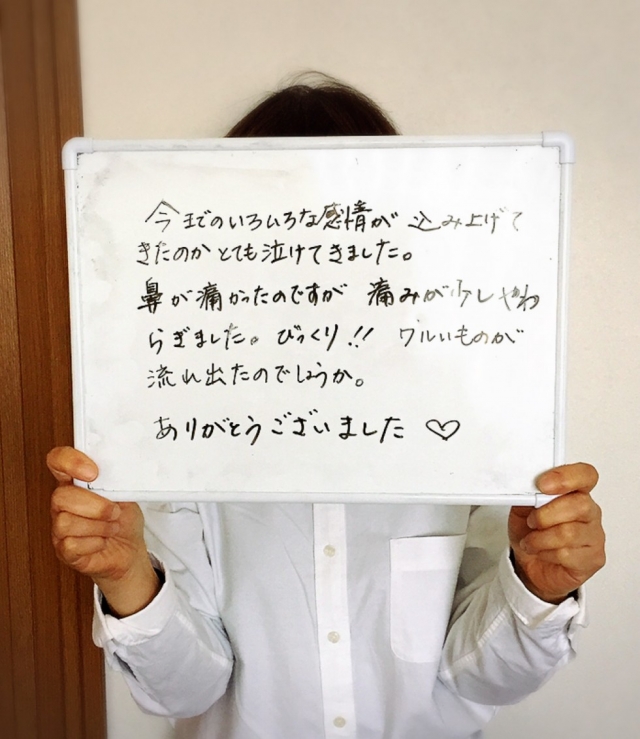 今までのいろいろな感情が込み上げて
きたのかとても泣けてきました。
鼻が痛かったのですが 痛みが少しやわ
らぎました。びっくり!! ワルいものが
流れ出たのでしょうか。
ありがとうございました♡